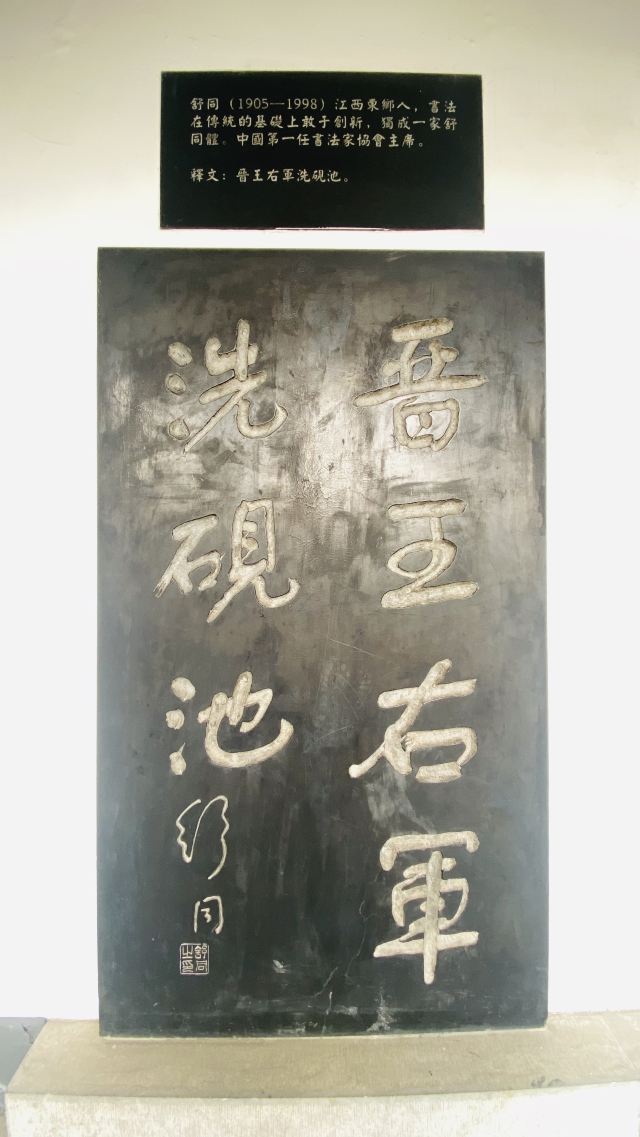 舒同（1905—1998）江西東鄉人，書法
在傳統的基礎上敢于創新，獨成一家舒
同體。中國第一任書法家協會主席。
釋文：晉王右軍洗硯池。
晉王右軍
洗硯池
舒同
舒同之印